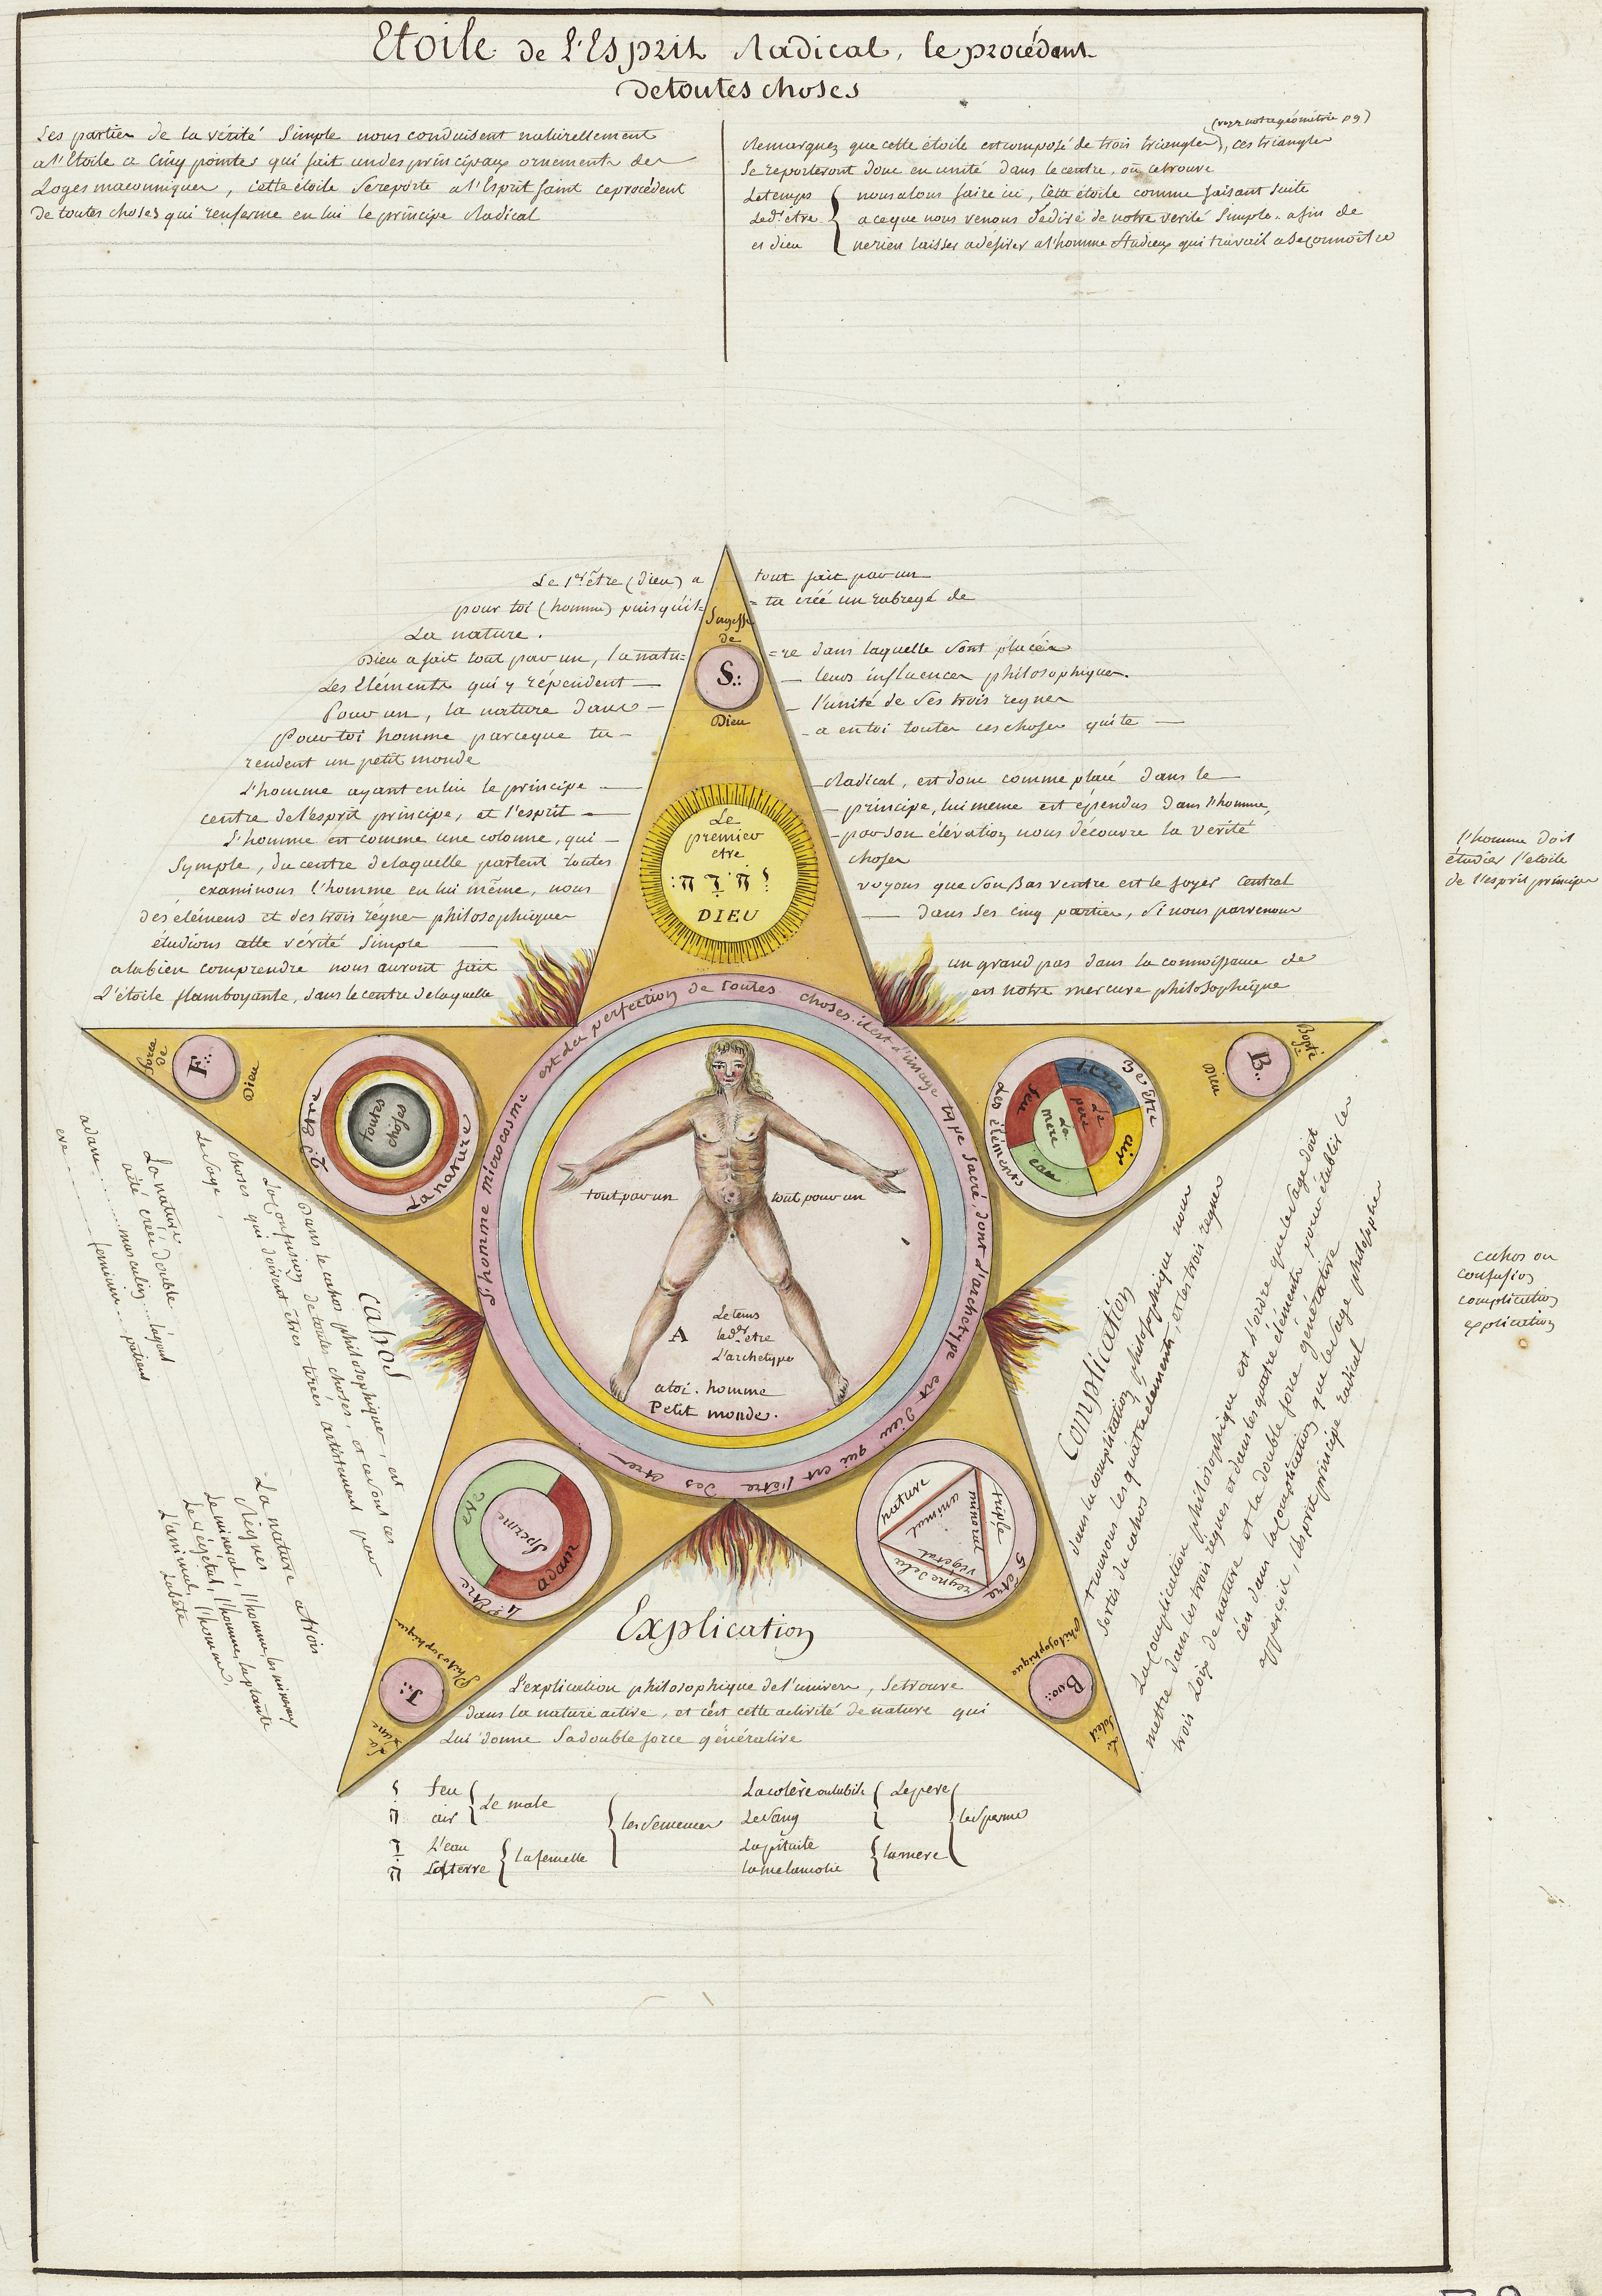 Etoile de l'Esprit Radical, le procédant
de toutes choses
Les parties de la vérité Simple nous conduisent naturellement
a l'Etoile a Cinq pointes qui fait un des principaux ornements des
Loges maconniques, cette étoile Se reporte a l'Esprit Saint le procédent
De toutes choses qui renferme en lui le principe Radical
(voyez notre géométrie p 9)
Remarquez que cette étoile est composé de trois triangles, ces triangles
Se reporteront donc en unité dans le centre, où ce trouve
Le temps
Le d.r être
et dieu
nous alons faire ici, Cette étoile comme faisant Suite
a ce que nous venons de dire de notre verité Simple. afin de
ne rien laisser a désirer a l'homme Studieux qui travail a Se connoitre
Le 1er être (Dieu) a tout fait par un
pour toi (homme) puisqu'il = ta créé un abregé de
La nature.
Dieu a fait tout par un, la natu= =re dans laquelle Sont placées
Les Eléments qui y répendent — leurs influences philosophiques.
Pour un, la nature dans — l'unité de Ses trois regnes
Pour toi homme parceque tu — a en toi toutes ces choses qui te —
rendent un petit monde
L'homme ayant en lui le principe — Radical, est donc comme placé dans le —
centre de l'esprit principe, et l'esprit — principe, lui meme est épendus dans l'homme,
L'homme est comme une colonne, qui — par Son élévation nous découvre la verité
Symple, du centre de laquelle partent toutes choses
examinons l'homme en lui même, nous voyons que Son Bas ventre est le foyer Central
des élémens et des trois régnes philosophiques — dans Ses cinq parties, Si nous parvenons
étudions cette vérité Simple —
a la bien comprendre nous auront fait un grand pas dans la connoissance de
L'étoile flamboyante, dans le centre de laquelle est notre mercure philosophique
Sagesse
de
S.:
Dieu
Le
premier
etre
יהוה
DIEU
l'homme doit
étudier l'etoile
de l'esprit principe
force
de
F.:
Dieu
2.e Etre
La nature
toutes
choses
3.e être
Les éléments
terre
air
eau
feu
Le
pere
La
mere
Bonté
de
B.:
Dieu
L'homme microcosme est la perfection de toutes choses: il est l'image type Sacré, dont l'archetype est Dieu qui est l'être des êtres
tout par un
tout pour un
A
Le tems
le d.er etre
L'archetype
a toi. homme
Petit monde.
adam ... masculin ... l'agent
eve ... feminin ... patient
La nature,
a été créée double
cahos
Dans le cahos philosophique, est
La confusion de toutes choses, et ce sont ces
choses qui doivent êtres tirées artistement par
Le Sage,
La nature a trois
Régnes
Le mineral, l'homme, les mineraux
Le végétal, l'homme, la plante
L'animal, l'homme,
La bête
Complication
dans la complication philosophique nous
trouvons les quatre elements, et les trois regnes
Sortis du cahos
La complication philosophique est l'ordre que le Sage doit
mettre dans les trois régnes et dans les quatre éléments pour établir les
trois Loix de nature et la double force générative
c'est dans la complication que le Sage philosophe
apperçoit, l'esprit principe radical
cahos ou
confusion
complication
explication
4.e Etre
eve
adam
Sperme
5.e être
triple
nature
regne de la
mineral
animal
vegetal
Philosophique
J.:
La
Lune
Philosophique
Boo.:
Le
Soleil
Explication
L'explication philosophique de l'univers, Se trouve
dans la nature active, et c'est cette activité de nature qui
Lui donne Sa double force générative
י feu
ה air
Le male
ו L'eau
ה La terre
La femelle
les Semences
La colère ou la bile
Le Sang
Le pere
La pituite
la melancolie
la mere
le Sperme